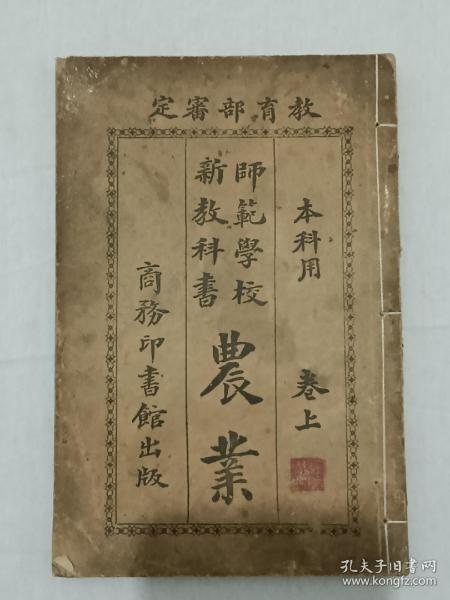 教育部審定
本科用 卷上
師範學校
新教科書
農業
商務印書館出版
孔夫子旧书网
www.kongfz.com